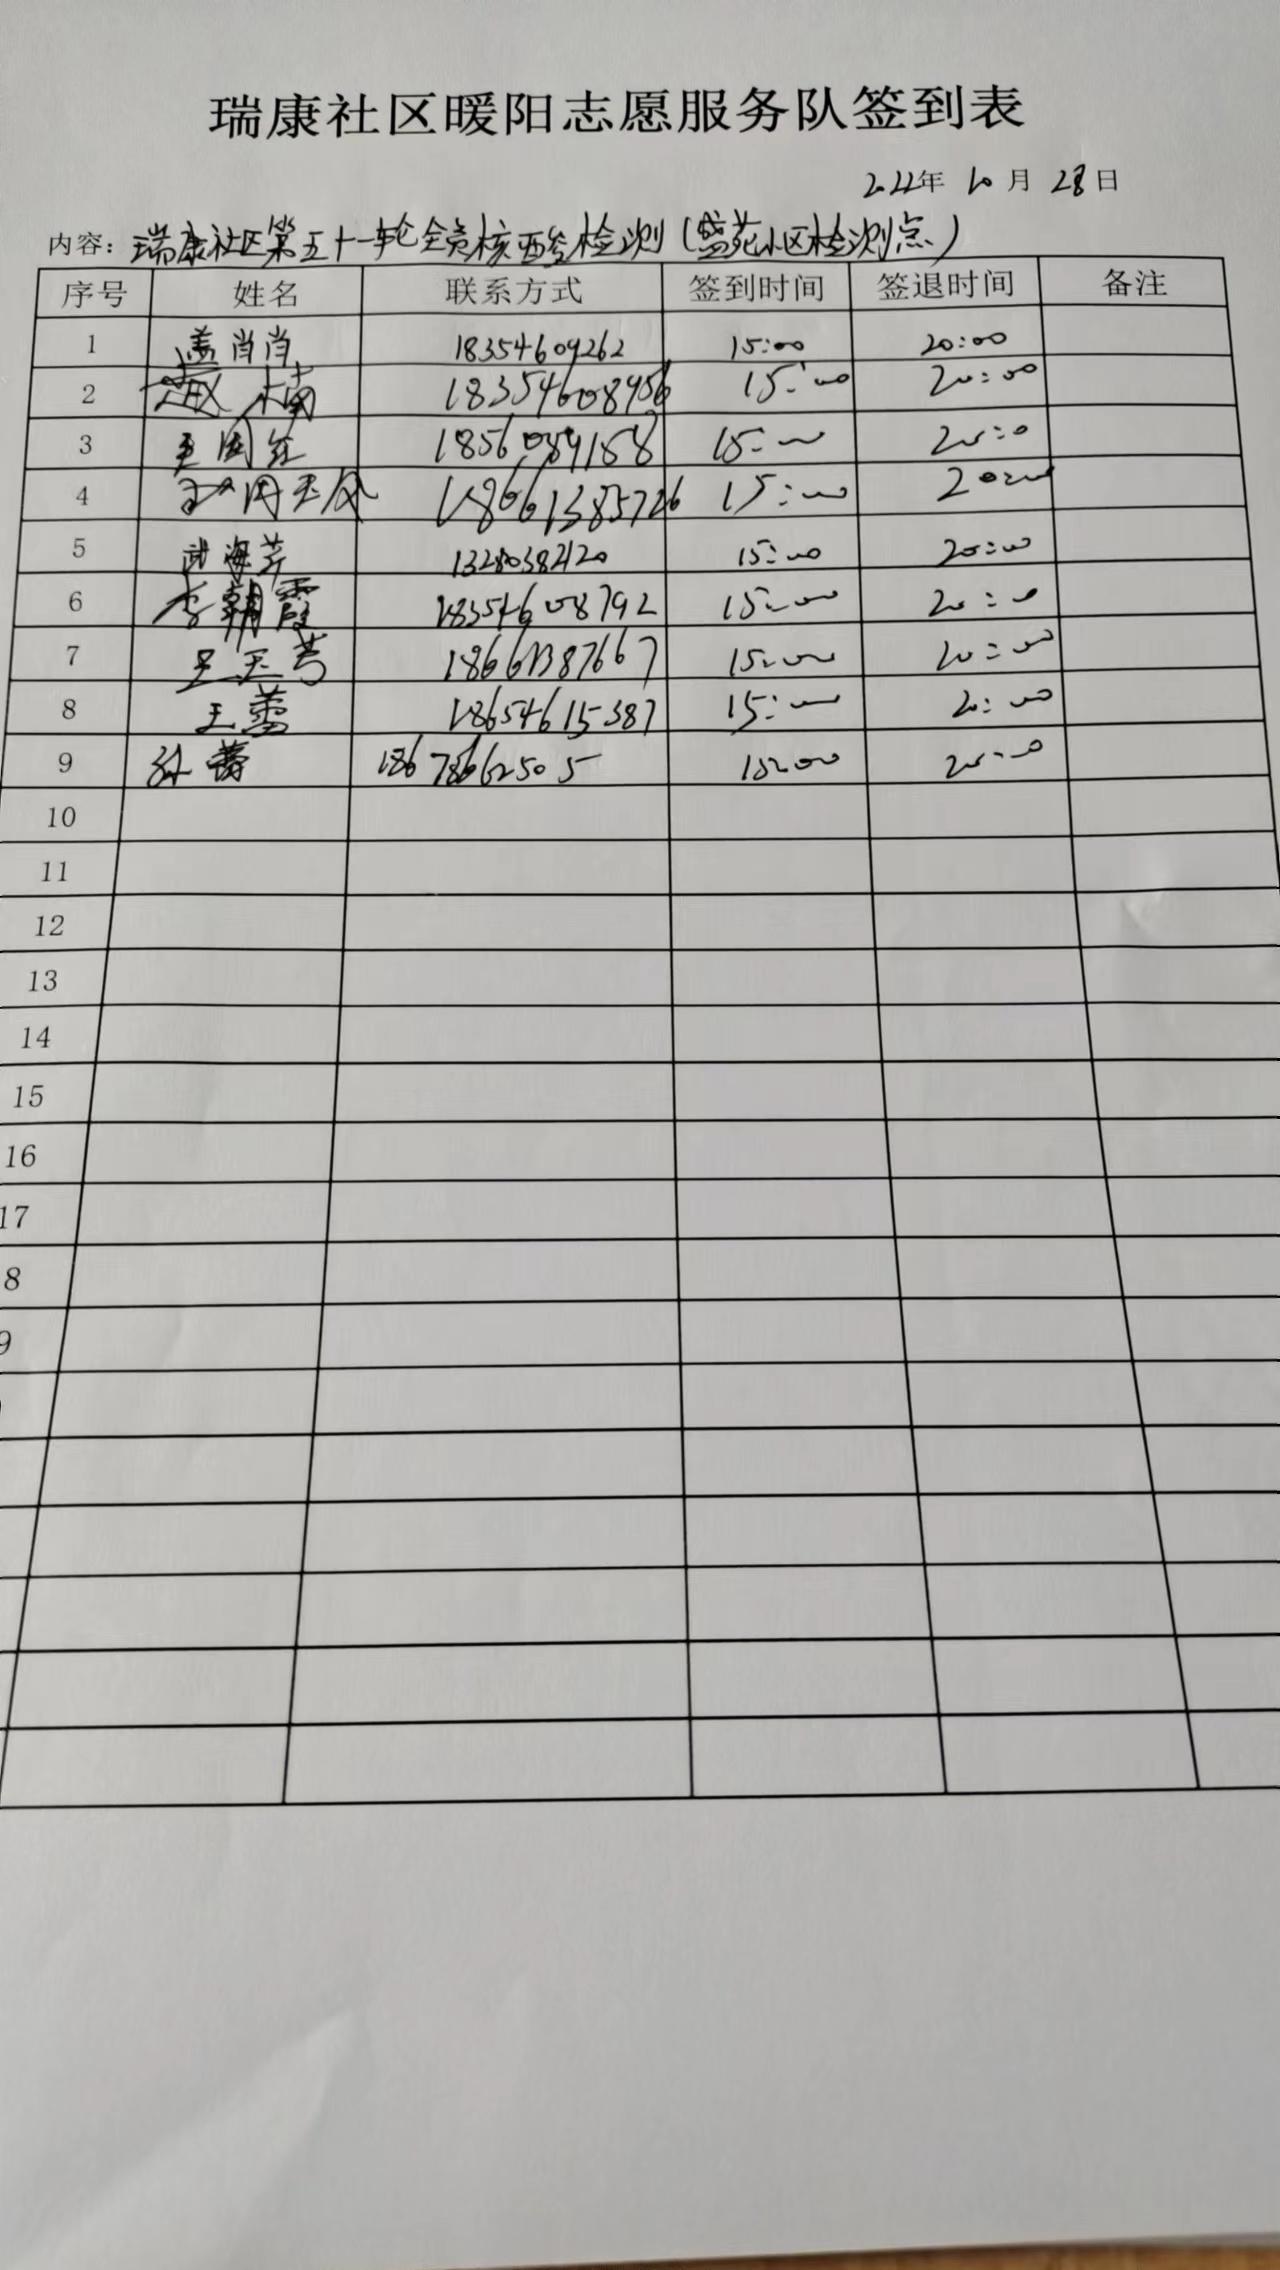 瑞康社区暖阳志愿服务队签到表
2022年 10月 28日
内容：瑞康社区第五十一轮全员核酸检测（盛苑小区检测点）
序号 姓名 联系方式 签到时间 签退时间 备注
1 盖肖肖 18354609262 15:00 20:00
2 赵楠 18354608956 15:00 20:00
3 王国红 15:00 20:00
4 18661385726 15:00 20:00
5 武海芹 13280382120 15:00 20:00
6 李朝霞 18354608792 15:00 20:00
7 王玉芳 18661387667 15:00 20:00
8 王蕾 18654615387 15:00 20:00
9 孙蕾 18678662505 15:00 20:00
10
11
12
13
14
15
16
17
8
9